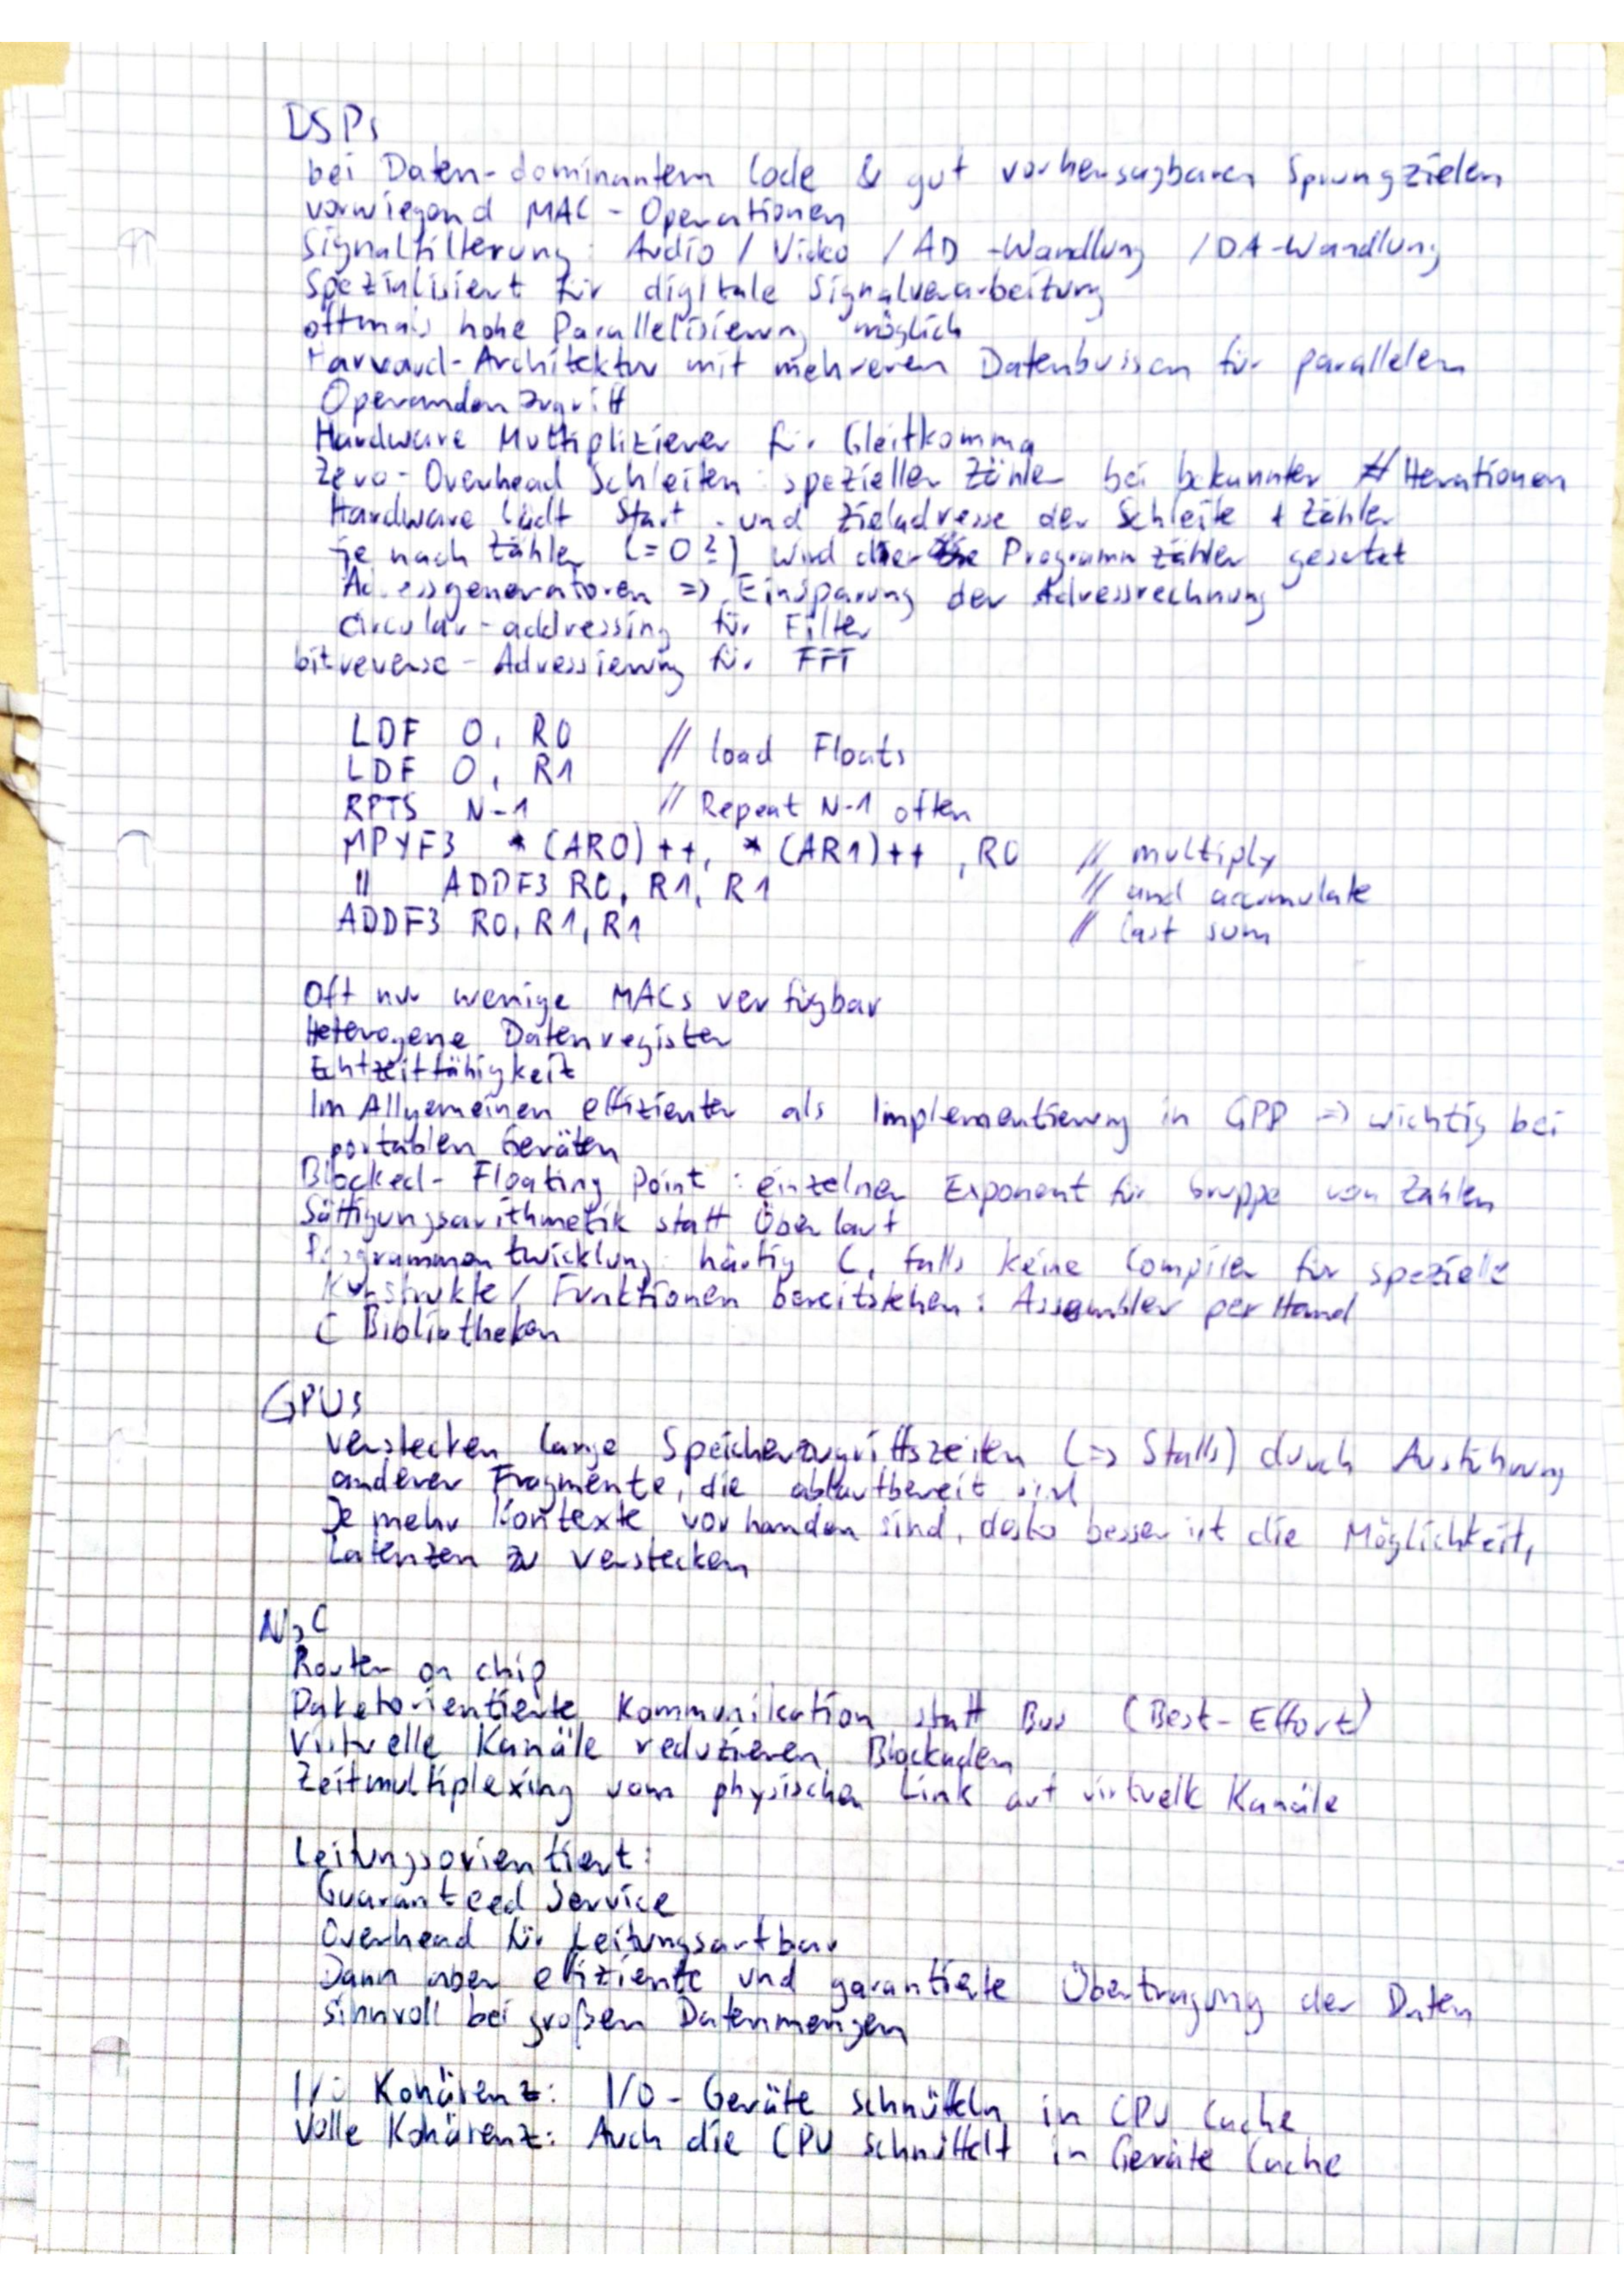 DSPs
bei Daten-dominantem Code & gut vorhersagbaren Sprungzielen
vorwiegend MAC-Operationen
Signalfilterung: Audio / Video / AD-Wandlung / DA-Wandlung
Spezialisiert für digitale Signalverarbeitung
oftmals hohe Parallelisierung möglich
Harvard-Architektur mit mehreren Datenbussen für parallelen
Operandenzugriff
Hardware Multiplizierer für Gleitkomma
Zero-Overhead Schleifen: spezieller Zähler bei bekannter # Iterationen
Hardware lädt Start- und Zieladresse der Schleife + Zähler
je nach Zähler (=0?) wird der Programmzähler gesetzt
Adressgeneratoren => Einsparung der Adressrechnung
circular-addressing für Filter
bitreverse-Adressierung für FFT
LDF 0, R0 // load Floats
LDF 0, R1
RPTS N-1 // Repeat N-1 often
MPYF3 *(AR0)++, *(AR1)++, R0 // multiply
|| ADDF3 R0, R1, R1 // and accumulate
ADDF3 R0, R1, R1 // last sum
Oft nur wenige MACs verfügbar
Heterogene Datenregister
Echtzeitfähigkeit
Im Allgemeinen effizienter als Implementierung in GPP => wichtig bei
portablen Geräten
Blocked-Floating Point: einzelner Exponent für Gruppe von Zahlen
Sättigungsarithmetik statt Überlauf
Programmentwicklung: häufig C, falls keine Compiler für spezielle
Konstrukte / Funktionen bereitstehen: Assembler per Hand
C Bibliotheken
GPUs
verstecken lange Speicherzugriffszeiten (=> Stalls) durch Ausführung
anderer Fragmente, die ablaufbereit sind
Je mehr Kontexte vorhanden sind, desto besser ist die Möglichkeit,
Latenzen zu verstecken
NoC
Router on chip
Paketorientierte Kommunikation statt Bus (Best-Effort)
Virtuelle Kanäle reduzieren Blockaden
Zeitmultiplexing vom physischen Link auf virtuelle Kanäle
Leitungsorientiert:
Guaranteed Service
Overhead für Leitungsaufbau
Dann aber effiziente und garantierte Übertragung der Daten
sinnvoll bei großen Datenmengen
I/O Kohärenz: I/O-Geräte schnüffeln in CPU Cache
Volle Kohärenz: Auch die CPU schnüffelt in Geräte Cache